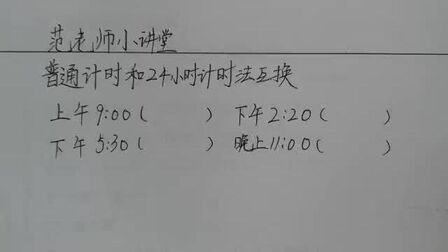 范老师小讲堂
普通计时和24小时计时法互换
上午9:00(  ) 下午2:20(  )
下午5:30(  ) 晚上11:00(  )